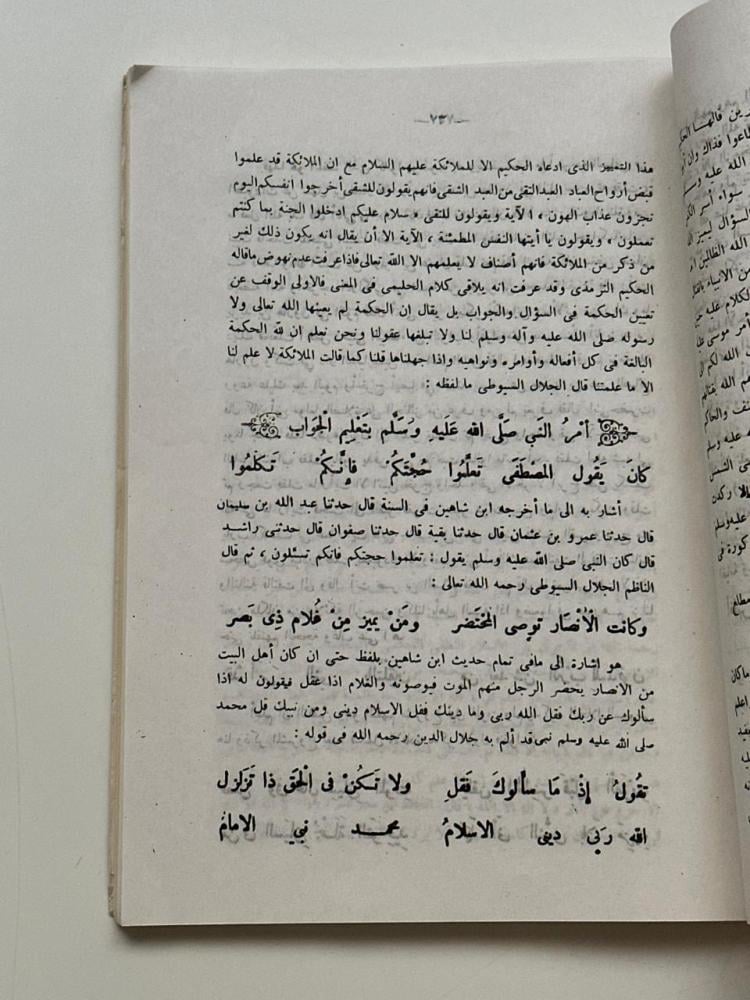 هذا التمييز الذى ادعاه الحكيم الا للملائكة عليهم السلام مع ان الملائكة قد علموا
قبض أرواح العباد العبد التقى من العبد الشقى فانهم يقولون للشقى أخرجوا انفسكم اليوم
تجزون عذاب الهون ، الآية ويقولون للتقى « سلام عليكم ادخلوا الجنة بما كنتم
تعملون ، ويقولون يا أيتها النفس المطمئنة ، الآية الا أن يقال انه يكون ذلك لغير
من ذكر من الملائكة فانهم أصناف لا يعلمهم الا الله تعالى فاذا عرفت عدم نهوض ماقاله
الحكيم الترمذى وقد عرفت انه يلاقى كلام الحليمى فى المعنى فالاولى الوقف عن
تعيين الحكمة فى السؤال والجواب بل يقال إن الحكمة لم يعينها الله تعالى ولا
رسوله صلى الله عليه وآله وسلم لنا ولا تبلغها عقولنا ونحن نعلم ان لله الحكمة
البالغة فى كل أفعاله وأوامره ونواهيه واذا جهلناها قلنا كما قالت الملائكة لا علم لنا
الا ما علمتنا قال الجلال السيوطى ما لفظه :
أمْرُ النَّبي صَلَّى الله عَلَيهِ وَسَلَّم بِتَعْلِيمِ الْجَوَاب
كَانَ يَقُولُ المصْطَفَى تَعَلَّمُوا حُجَّتَكُمْ فإِنَّكُمْ تَكَلَّمُوا
أشار به الى ما أخرجه ابن شاهين فى السنة قال حدثنا عبد الله بن سليمان
قال حدثنا عمرو بن عثمان قال حدثنا بقية قال حدثنا صفوان قال حدثنى راشد
قال كان النبى صلى الله عليه وسلم يقول : تعلموا حجتكم فانكم تسئلون ، ثم قال
الناظم الجلال السيوطى رحمه الله تعالى :
وكانت الْأنْصَار توصِى المحْتَضر ومَنْ يميز مِنْ غُلام ذِى بَصر
هو إشارة الى مافى تمام حديث ابن شاهين بلفظ حتى ان كان أهل البيت
من الانصار يحضر الرجل منهم الموت فيوصونه والغلام اذا عقل فيقولون له اذا
سألوك عن ربك فقل الله ربى وما دينك فقل الاسلام دينى ومن نبيك قل محمد
صلى الله عليه وسلم نبى قد ألم به جلال الدين رحمه الله فى قوله :
تقُولُ إذْ مَا سألوكَ فَقلِ ولا تَكنْ فى الْحَق ذا تزَلزل
الله رَبى دينى الاسلامُ محمد نبي الامامُ